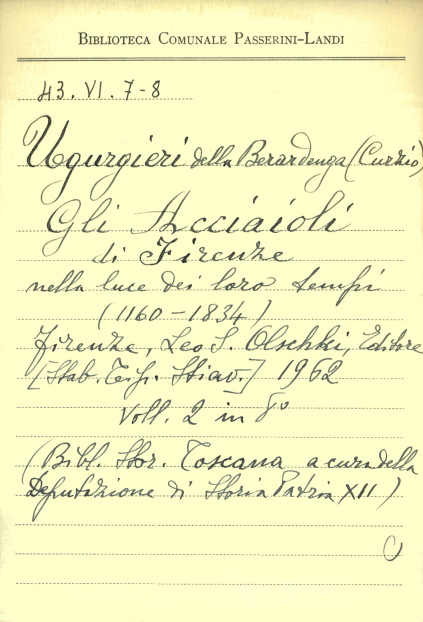 BIBLIOTECA COMUNALE PASSERINI-LANDI
43. VI. 7-8
Ugurgieri della Berardenga (Curzio)
Gli Acciaioli
di Firenze
nella luce dei loro tempi
(1160-1834)
Firenze, Leo S. Olschki, Editore
[Stab. Tip. Stiav.] 1962
Voll. 2 in 8°
(Bibl. Stor. Toscana a cura della
Deputazione di Storia Patria XII)